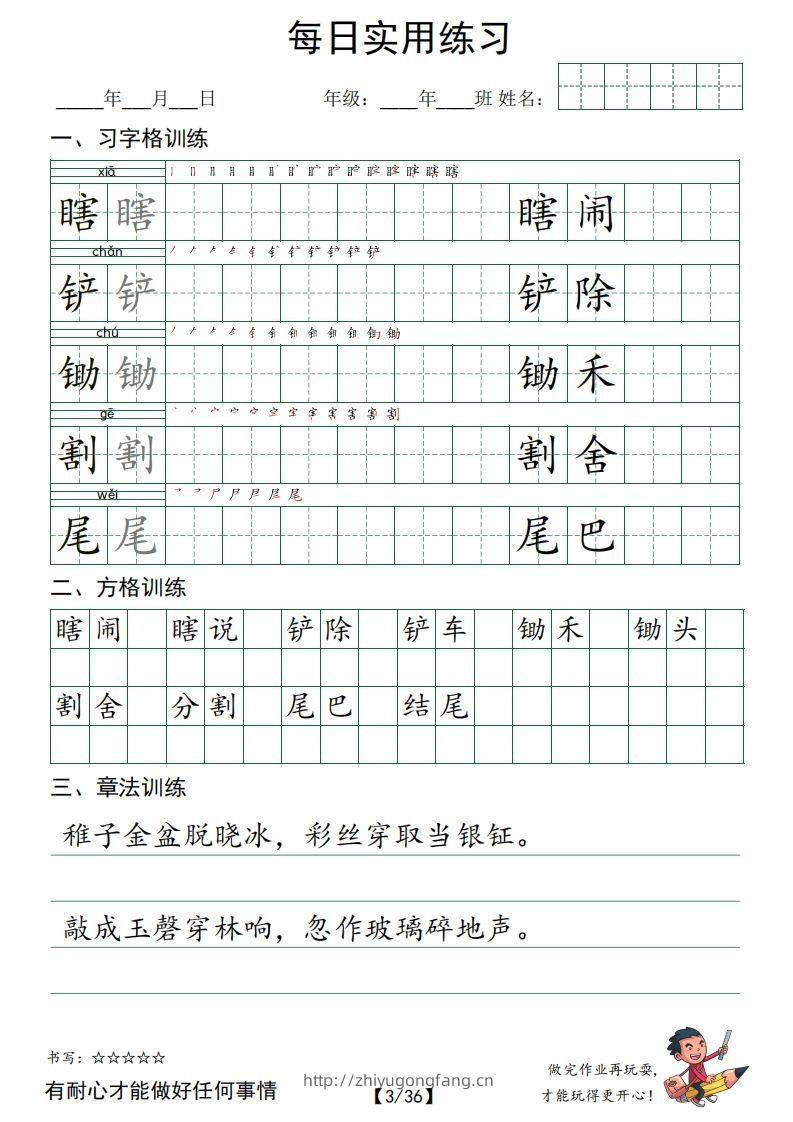 每日实用练习
_____年___月___日 年级：____年____班 姓名：
一、习字格训练
xiā
瞎 瞎 瞎 闹
chǎn
铲 铲 铲 除
chú
锄 锄 锄 禾
gē
割 割 割 舍
wěi
尾 尾 尾 巴
二、方格训练
瞎 闹 瞎 说 铲 除 铲 车 锄 禾 锄 头
割 舍 分 割 尾 巴 结 尾
三、章法训练
稚子金盆脱晓冰，彩丝穿取当银钲。
敲成玉磬穿林响，忽作玻璃碎地声。
书写：☆☆☆☆☆
有耐心才能做好任何事情
http://zhiyugongfang.cn
【3/36】
做完作业再玩耍，
才能玩得更开心！